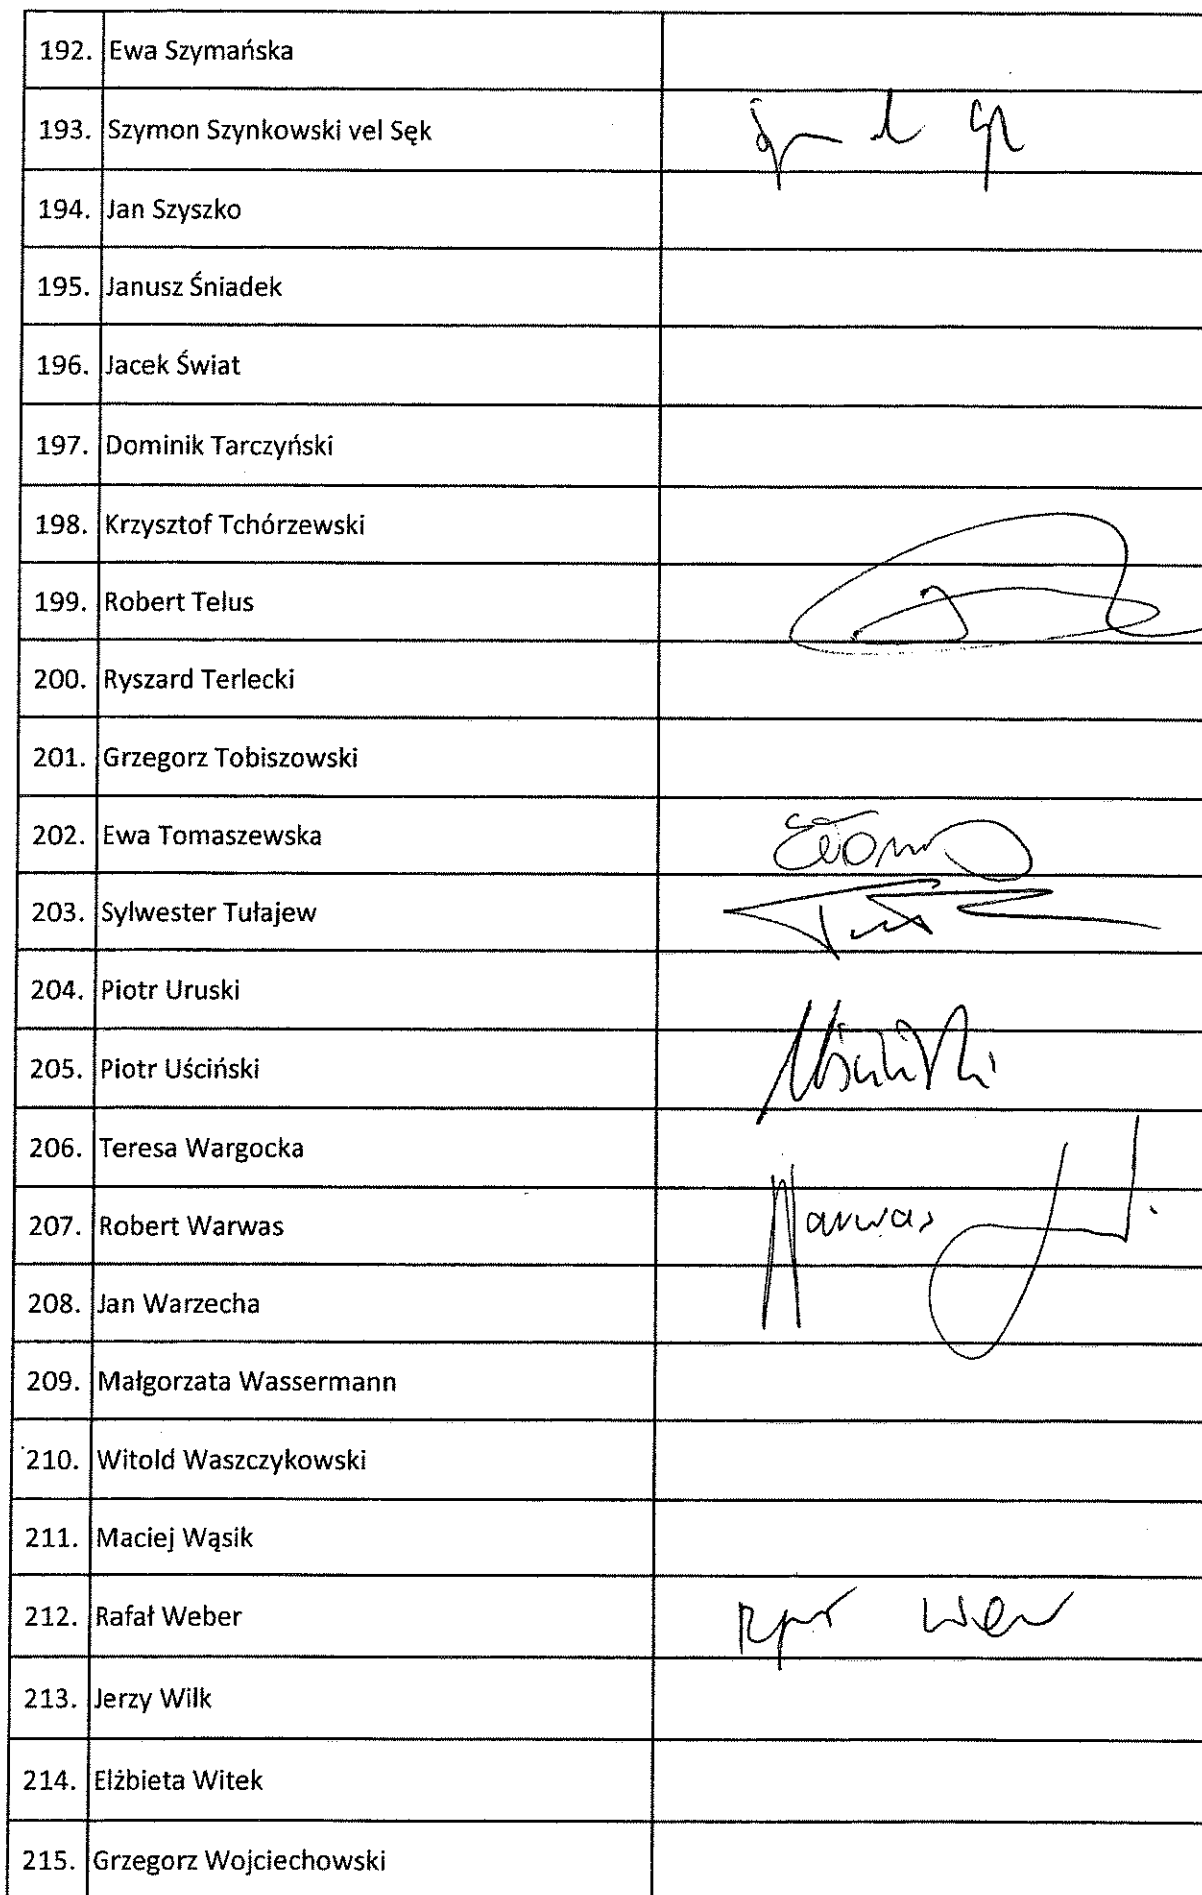 192. Ewa Szymańska
193. Szymon Szynkowski vel Sęk
194. Jan Szyszko
195. Janusz Śniadek
196. Jacek Świat
197. Dominik Tarczyński
198. Krzysztof Tchórzewski
199. Robert Telus
200. Ryszard Terlecki
201. Grzegorz Tobiszowski
202. Ewa Tomaszewska
203. Sylwester Tułajew
204. Piotr Uruski
205. Piotr Uściński
206. Teresa Wargocka
207. Robert Warwas Warwas
208. Jan Warzecha
209. Małgorzata Wassermann
210. Witold Waszczykowski
211. Maciej Wąsik
212. Rafał Weber
213. Jerzy Wilk
214. Elżbieta Witek
215. Grzegorz Wojciechowski